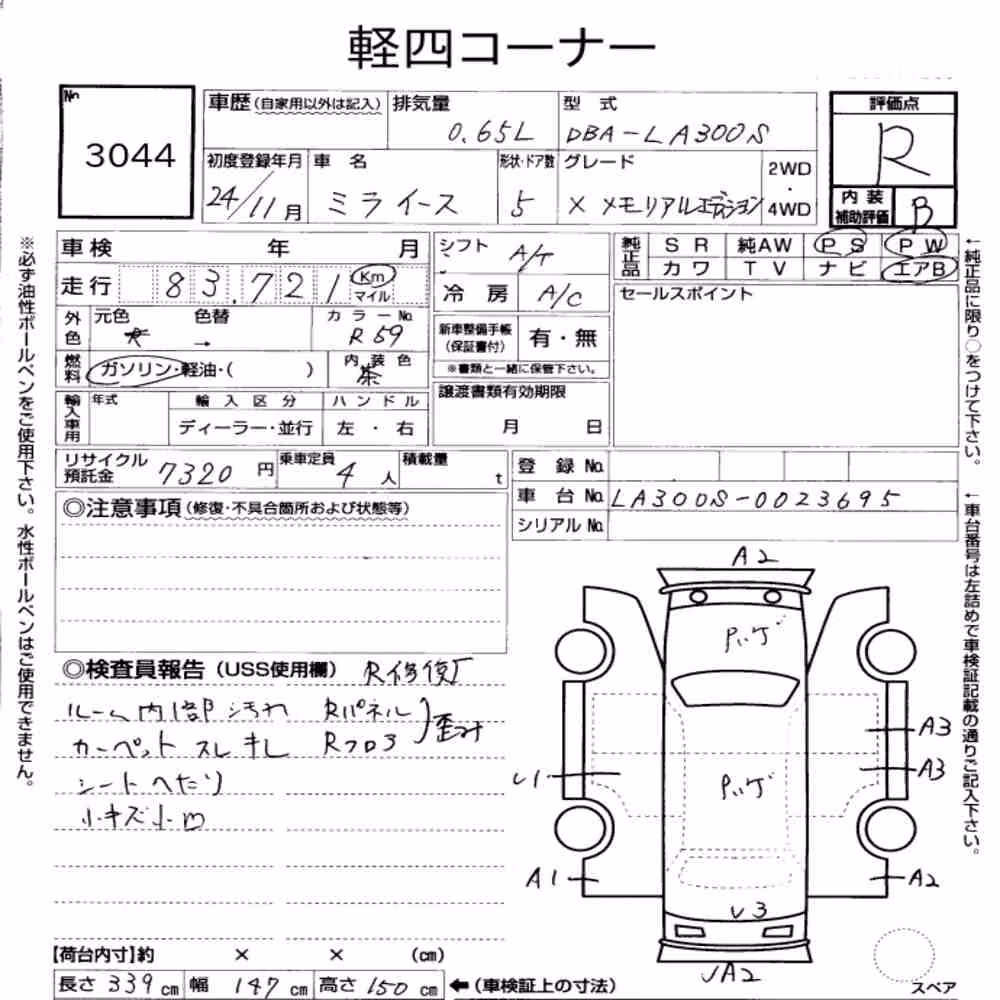 軽四コーナー
No. 3044
車歴(自家用以外は記入) 排気量 0.65L 型式 DBA-LA300S 評価点 R
初度登録年月 24/11月 車名 ミライース 形状・ドア数 5 グレード X メモリアルエディション 2WD・4WD 内装補助評価 B
車検 年 月 シフト A/T 純正品 SR 純AW PS PW
走行 83,721 Km マイル 冷房 A/C カワ TV ナビ エアB
外色 元色 茶 → 色替 カラーNo. R59 新車整備手帳(保証書付) 有・無 セールスポイント
※書類と一緒に保管下さい。
燃料 ガソリン・軽油・( ) 内装色 茶 譲渡書類有効期限 月 日
輸入車用 年式 輸入区分 ハンドル
ディーラー・並行 左・右
リサイクル預託金 7320円 乗車定員 4人 積載量 t 登録No.
車台No. LA300S-0023695
シリアルNo.
◎注意事項(修復・不具合箇所および状態等)
◎検査員報告(USS使用欄) R修復歴
ルーム内1部汚れ Rパネル
カーペットスレキレ Rフロア 歪み
シートへたり
小キズ小凹
A2
ハゲ
A3
A3
U1
ハゲ
A1
A2
U3
UA2
スペア
【荷台内寸】約 × × (cm)
長さ 339cm 幅 147cm 高さ 150cm ←(車検証上の寸法)
※必ず油性ボールペンをご使用下さい。水性ボールペンはご使用できません。
←純正品に限り○をつけて下さい。
←車台番号は左詰めで車検証記載の通りご記入下さい。